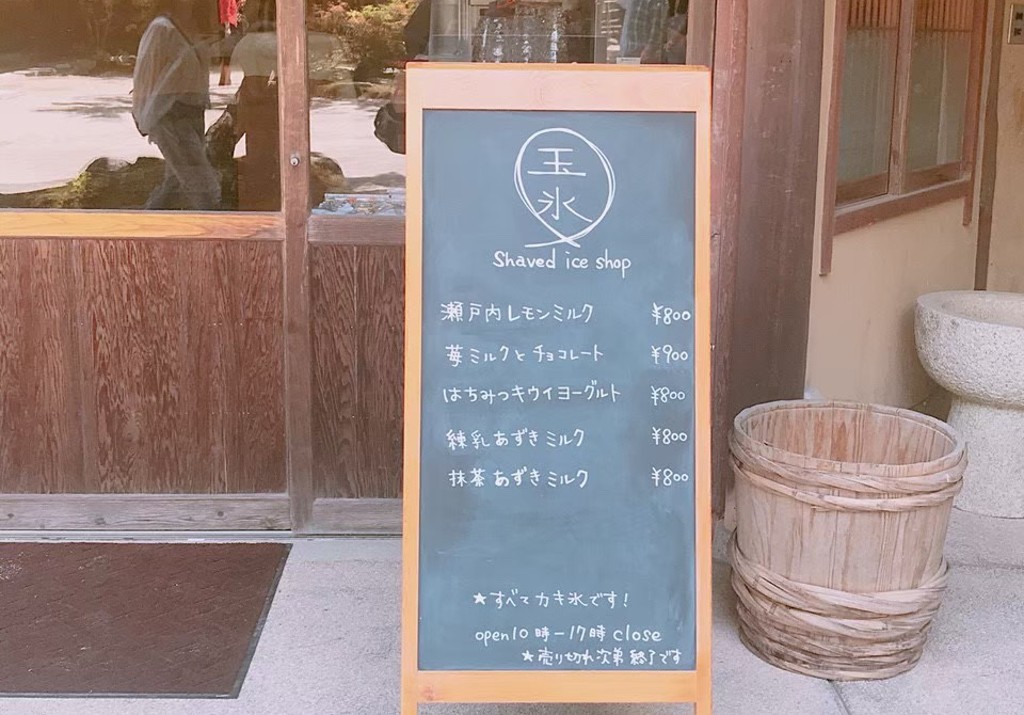 玉
氷
Shaved ice shop
瀬戸内レモンミルク ¥800
苺ミルクとチョコレート ¥900
はちみつキウイヨーグルト ¥800
練乳あずきミルク ¥800
抹茶あずきミルク ¥800
★すべてカキ氷です!
open10時-17時close
★売り切れ次第終了です